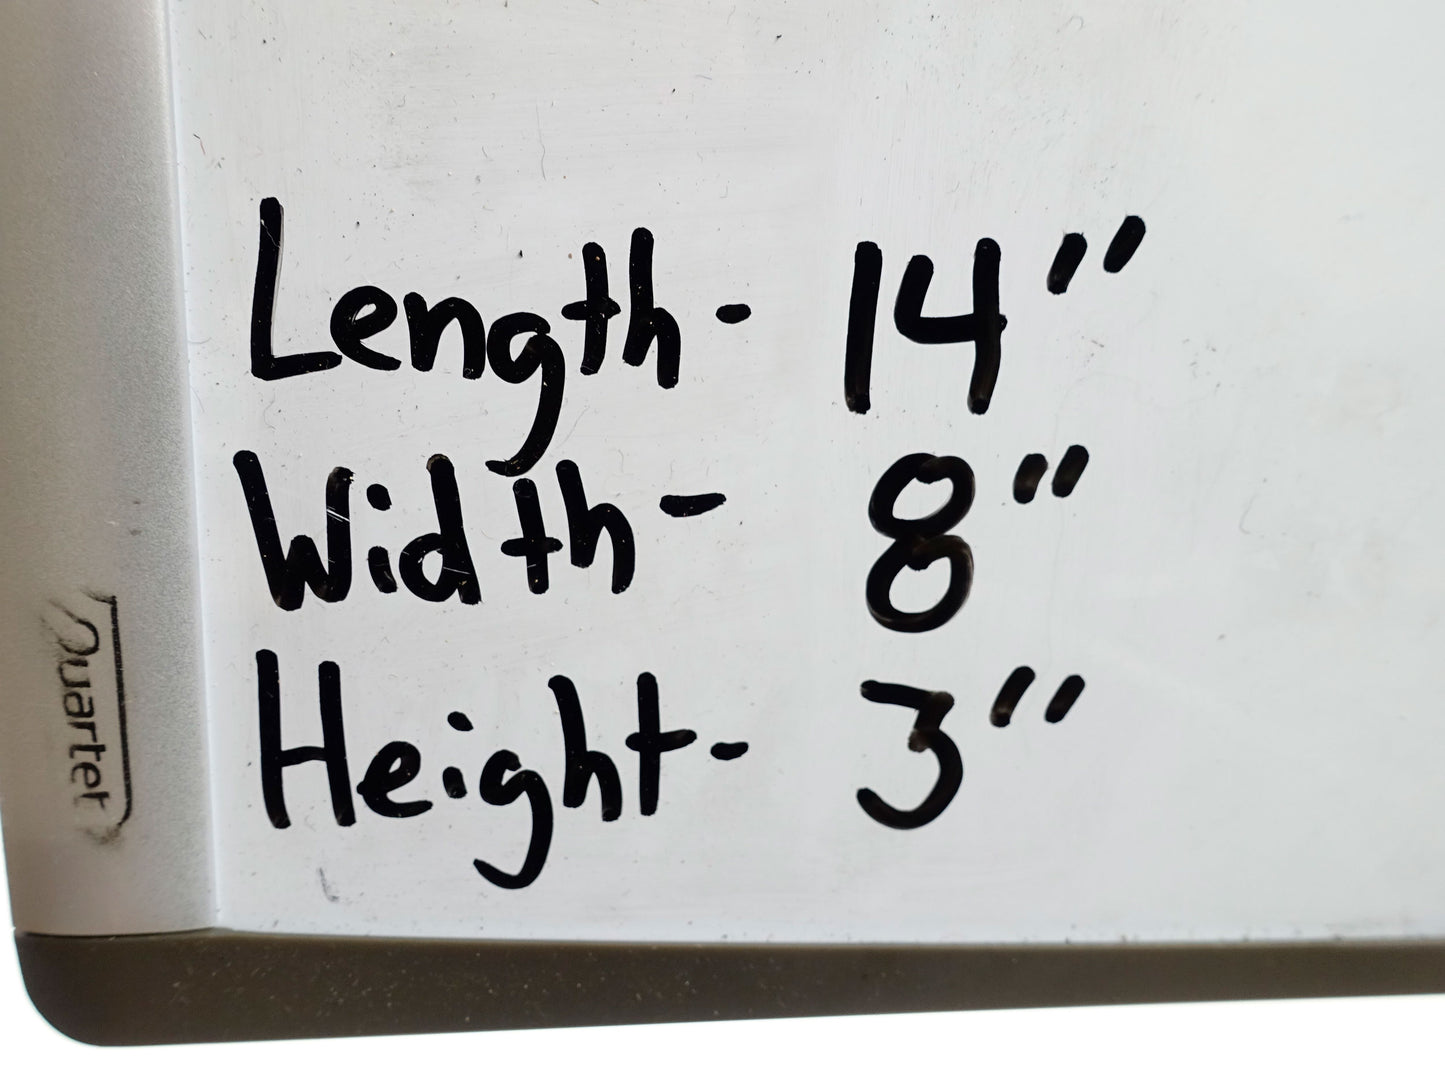 Length- 14"
Width- 8"
Height- 3"
Quartet